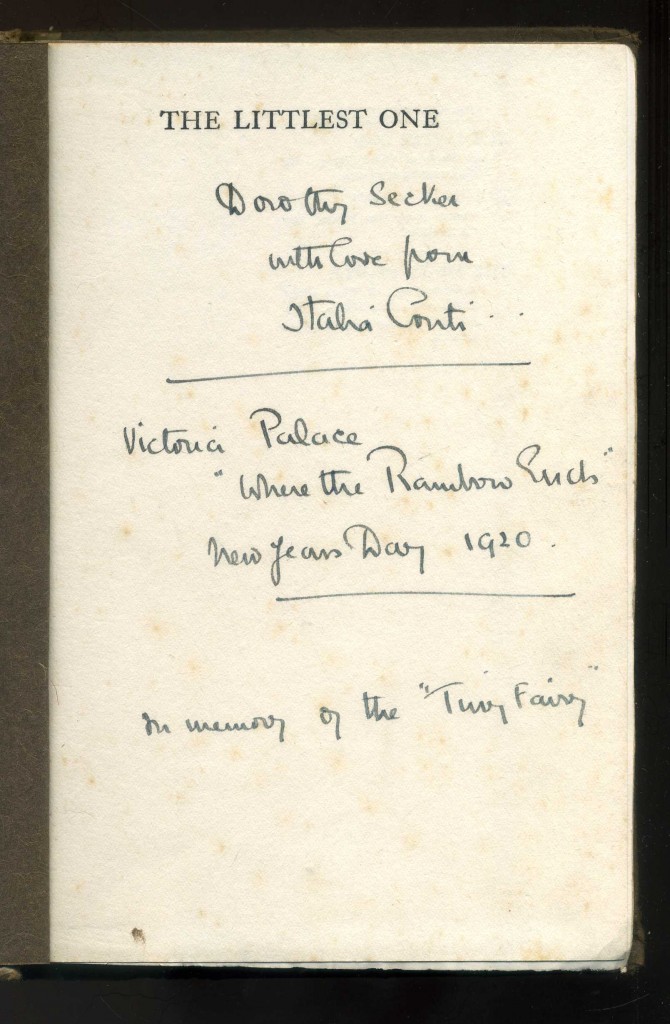 THE LITTLEST ONE
Dorothy Secker
with love from
Italia Conti
Victoria Palace
"Where the Rainbow Ends"
New Years Day 1920.
In memory of the "Tiny Fairy"